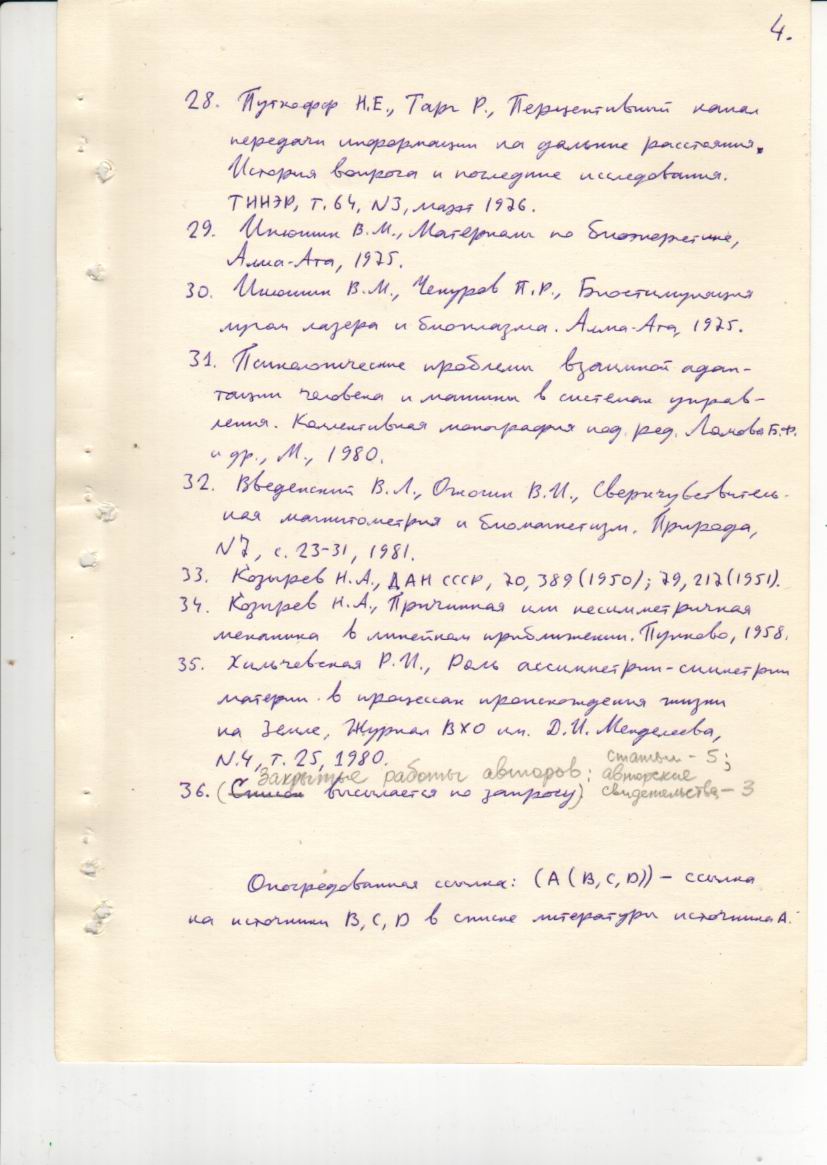 4.
28. Путхофф Н.Е., Тарг Р., Перцептивный канал
передачи информации на дальние расстояния.
История вопроса и последние исследования.
ТИИЭР, т.64, N3, март 1976.
29. Инюшин В.М., Материалы по биоэнергетике,
Алма-Ата, 1975.
30. Инюшин В.М., Чекуров П.Р., Биостимуляция
лучом лазера и биоплазма. Алма-Ата, 1975.
31. Психологические проблемы взаимной адап-
тации человека и машины в системах управ-
ления. Коллективная монография под. ред. Ломова Б.Ф.
и др., М., 1980.
32. Введенский В.Л., Ожогин В.И., Сверхчувствитель-
ная магнитометрия и биомагнетизм. Природа,
N7, с. 23-31, 1981.
33. Козырев Н.А., ДАН СССР, 70, 389 (1950); 79, 217 (1951).
34. Козырев Н.А., Причинная или несимметричная
механика в линейном приближении. Пулково, 1958.
35. Хильчевская Р.И., Роль ассимметрии-симметрии
материи в процессах происхождения жизни
на Земле, Журнал ВХО им. Д.И. Менделеева,
N.4, т. 25, 1980.
Закрытые работы авторов: статьи - 5;
авторские
36. (Список высылается по запросу) свидетельства - 3
Опосредованная ссылка: (А (В, С, D)) - ссылка
на источники В, С, D в списке литературы источника А.